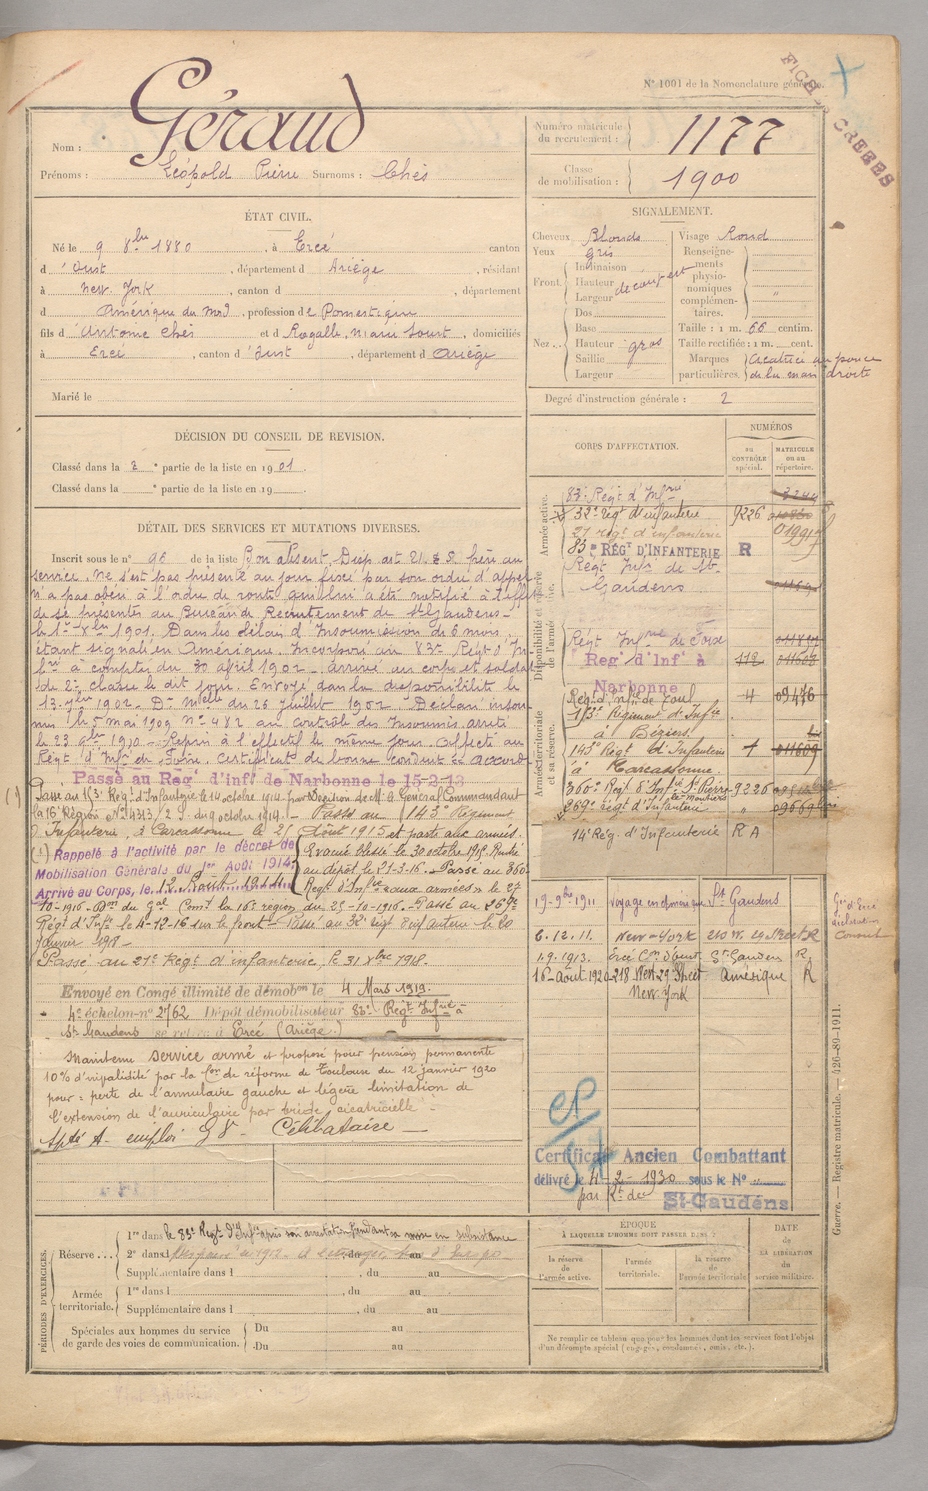 N° 1001 de la Nomenclature générale.
FICH CREEES
Nom : Géraud
Prénoms : Léopold Pierre Surnoms : Chés
Numéro matricule du recrutement : 1177
Classe de mobilisation : 1900
ÉTAT CIVIL.
Né le 9 8bre 1880, à Ercé canton
d'Oust, département d Ariège, résidant
à New York, canton d , département
d Amérique du Nord, profession de Domestique
fils d Antoine Chés et d Rogalle, Marie Soust, domiciliés
à Ercé, canton d'Oust, département d Ariège
Marié le
SIGNALEMENT.
Cheveux Blonds
Yeux gris
Front Inclinaison
Hauteur découvert
Largeur
Nez Dos
Base
Hauteur gros
Saillie
Largeur
Visage Rond
Renseignements physionomiques complémentaires. "
Taille : 1 m. 66 centim.
Taille rectifiée : 1 m. cent.
Marques particulières. Cicatrice au pouce
de la main droite
Degré d'instruction générale : 2
DÉCISION DU CONSEIL DE REVISION.
Classé dans la 2e partie de la liste en 1901.
Classé dans la e partie de la liste en 19 .
DÉTAIL DES SERVICES ET MUTATIONS DIVERSES.
Inscrit sous le n° 96 de la liste Bon absent. Disp. art. 21. frère au
service. Ne s'est pas présenté au jour fixé par son ordre d'appel
n'a pas obéi à l'ordre de route qui lui a été notifié à l'effet
de se présenter au Bureau de Recrutement de St Gaudens
le 1er 8bre 1901. Dans les délais d'Insoumission de 6 mois
étant signalé en Amérique. Incorporé au 83e Régt d'In
fie à compter du 30 avril 1902 arrivé au corps et soldat
de 2e classe le dit jour. Envoyé dans la disponibilité le
13 7bre 1902. Don Mielle du 26 juillet 1902. Déclaré insou
mis le 5 mai 1909 n° 482 au contrôle des Insoumis. arrêté
le 23 1910. Repris à l'effectif le même jour. Affecté au
Régt d'Inf. de Foix. Certificat de bonne conduite accordé
Passé au Régt d'infie de Narbonne le 15-2-13
(1) Passé au 113e Régt d'Infanterie le 14 octobre 1914 par Décision de Mr le Général Commandant
la 16e Région N° 4313/2 S. du 9 octobre 1914. Passé au 143e Régiment
d'Infanterie, à Carcassonne le 21 Août 1915 et parti aux armées.
(1) Rappelé à l'activité par le décret de
Mobilisation Générale du 1er Août 1914
Arrivé au Corps, le 12 Août 1914
Evacué blessé le 30 octobre 1915. Rentré
au dépôt le 27-3-16. Passé au 360e
Régt d'Infie aux armées le 27
10-1916. Don du Gal Comt la 16e région du 25-10-1916. Passé au 269e
Régt d'Infie le 4-12-16 sur le front. Passé au 32e régt d'infanterie le 20
Janvier 1918.
Passé au 27e Régt d'infanterie, le 31 Xbre 1918.
Envoyé en Congé illimité de démobon le 4 Mars 1919.
4e échelon n° 2762 Dépôt démobilisateur 83e Régt Infrie à
St Gaudens se retire à Ercé (Ariège)
Maintenu service armé et proposé pour pension permanente
10% d'invalidité par la Con de réforme de Toulouse du 12 janvier 1920
pour : perte de l'annulaire gauche et légère limitation de
l'extension de l'auriculaire par bride cicatricielle
Apte A. emploi G V. Célibataire
CORPS D'AFFECTATION.
NUMÉROS
au CONTRÔLE spécial.
MATRICULE ou au répertoire.
Armée active.
83e Régt d'Infrie
32e régt d'infanterie 9226
27 régt d'infanterie
83e RÉGt D'INFANTERIE R
Disponibilité et réserve de l'armée active.
Régt Infie de St
Gaudens
Régt Infrie de Foix
Regt d'Infie à Narbonne 112
Armée territoriale et sa réserve.
Régt d'Infie de Toul 4 09476
113e Régiment d'Infie
à Béziers.
143e Régt d'Infanterie
à Carcassonne.
360e Régt d'Infie St Pierre 9226
269e Régt d'Infanterie
14e Rég. d'Infanterie R A
19-9bre-1911 Voyage en Amérique St Gaudens
6.12.11. New-York 210 W. 29 Street R
1.9.1913. Ercé Con d'Oust St Gaudens R
16-août 1920 218 West 29 Street Amérique R
New York
Gie d'Ercé
déclaration
Consul
CP
Certificat Ancien Combattant
délivré le 4-2-1930 sous le N°
par Rt de St-Gaudens
PÉRIODES D'EXERCICES.
Réserve 1re dans le 83e Régt d'Infie après son arrestation pendant sa mise en subsistance
2e dans Dispensé en 1912 du au
Supplémentaire dans l , du au
Armée territoriale. 1re dans l , du au
Supplémentaire dans l , du au
Spéciales aux hommes du service de garde des voies de communication. Du au
Du au
EPOQUE
À LAQUELLE L'HOMME DOIT PASSER DANS :
la réserve de l'armée active.
l'armée territoriale.
la réserve de l'armée territoriale
DATE de LA LIBÉRATION du service militaire.
Ne remplir ce tableau que pour les hommes dont les services font l'objet
d'un décompte spécial (engagés, condamnés, omis, etc.).
Guerre. — Registre matricule. — 426-89-1911.